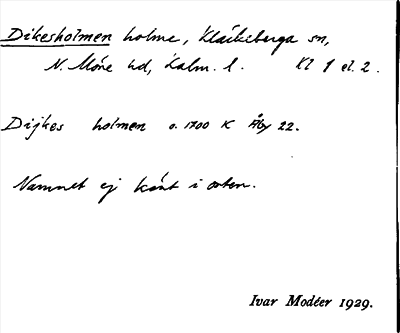 Dikesholmen holme, Kläckeberga sn,
N. Möre hd, Kalm. l. Kl 1 el. 2.
Dijkes holmen o. 1700 K Åby 22.
Namnet ej känt i orten.
Ivar Modéer 1929.